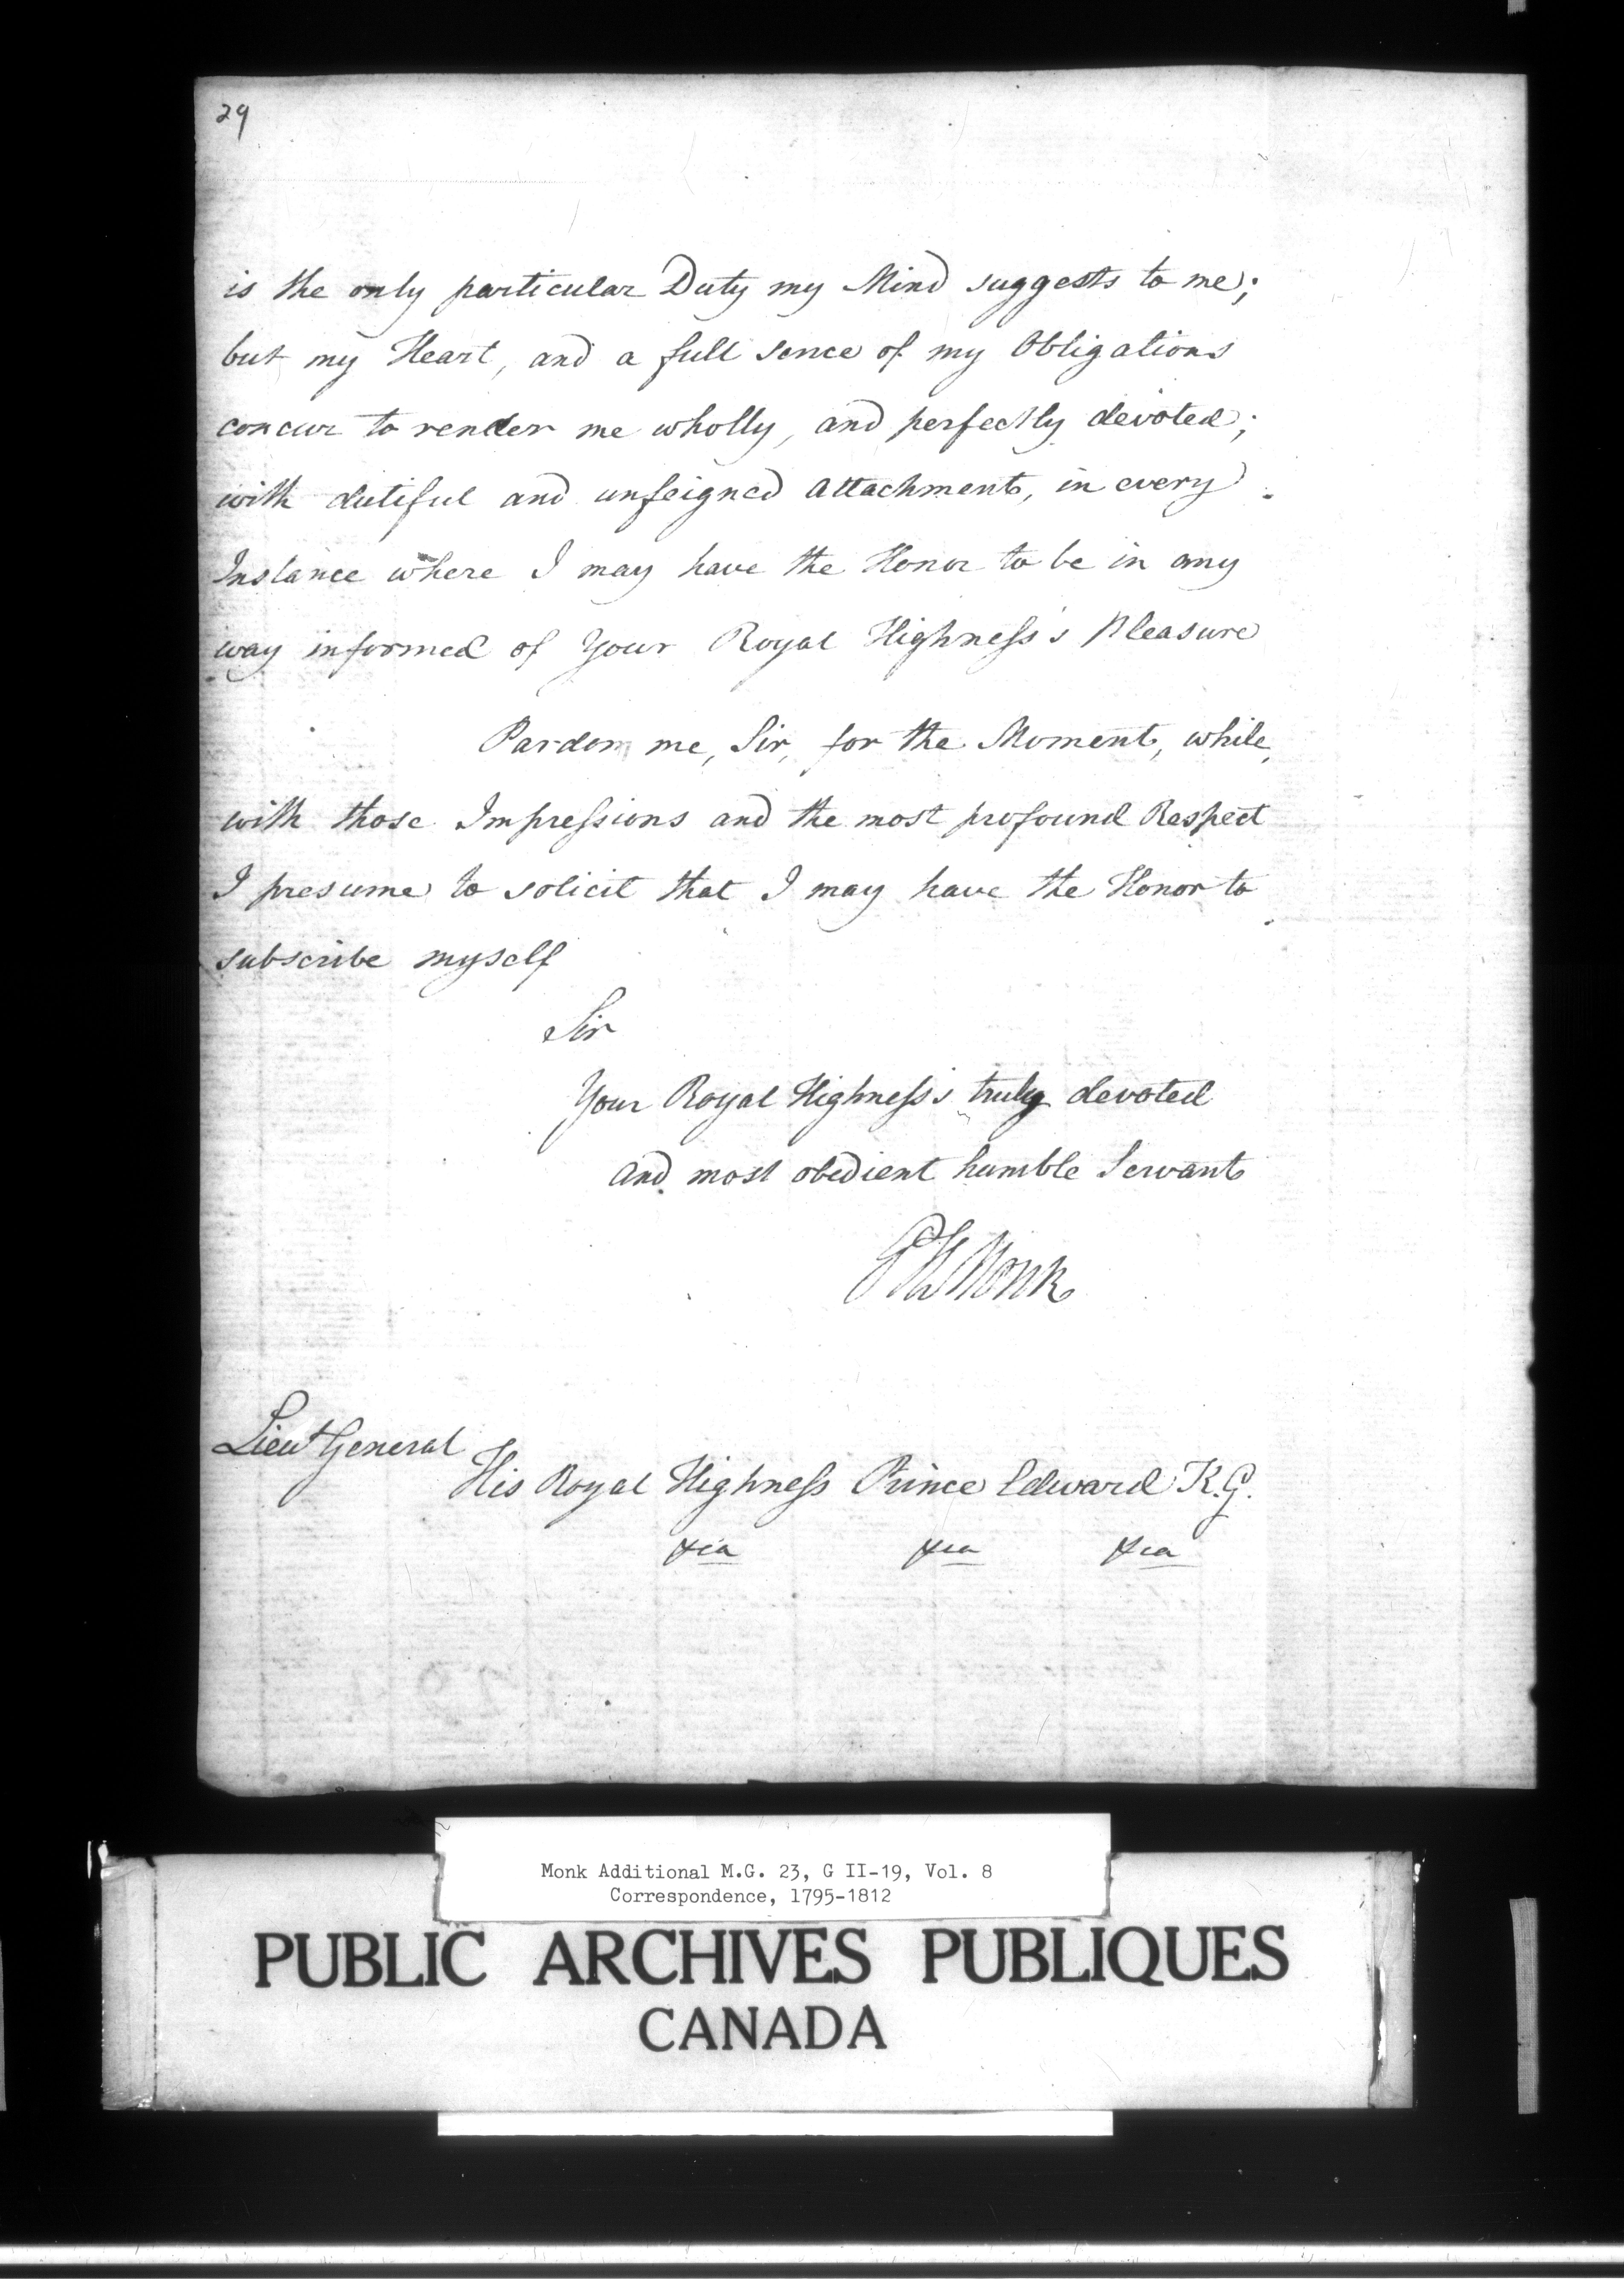 29
is the only particular Duty my Mind suggests to me;
but my Heart, and a full sence of my Obligations
concur to render me wholly, and perfectly devoted;
with dutiful and unfeigned Attachment, in every
Instance where I may have the Honor to be in any
way informed of Your Royal Highness's Pleasure
Pardon me, Sir, for the Moment, while,
with those Impressions and the most profound Respect
I presume to solicit that I may have the Honor to
subscribe myself
Sir
Your Royal Highness's truly devoted
and most obedient humble Servant
GHMonk
Lieut General
His Royal Highness Prince Edward K.G.
&ca &ca &ca
Monk Additional M.G. 23, G II-19, Vol. 8
Correspondence, 1795-1812
PUBLIC ARCHIVES PUBLIQUES
CANADA